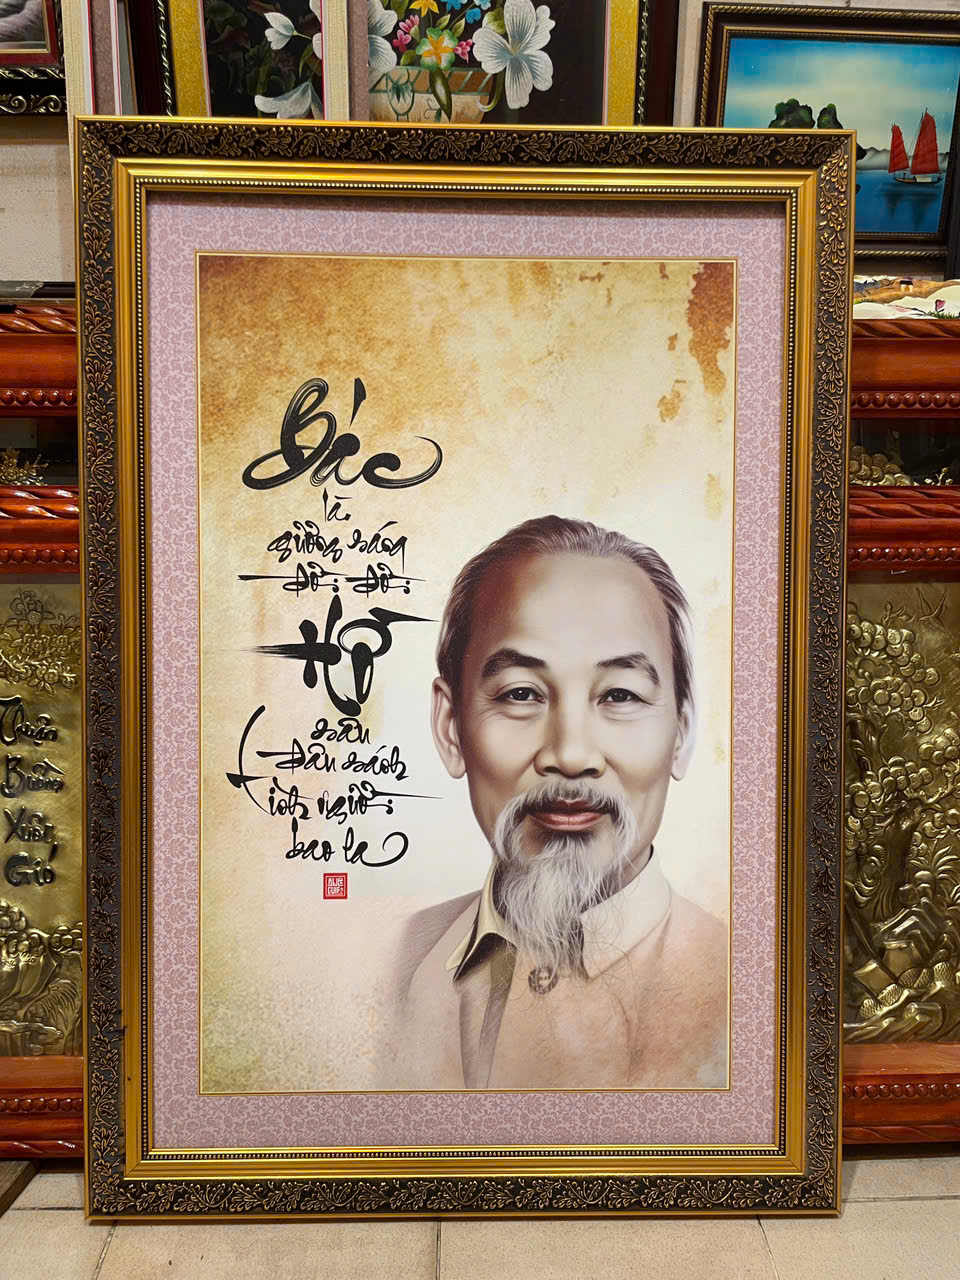 Bác
là
gương sáng
đời đời
Hồ
sâu
đâu sánh
tình người
bao la
Thuận
Buồm
Xuôi
Gió